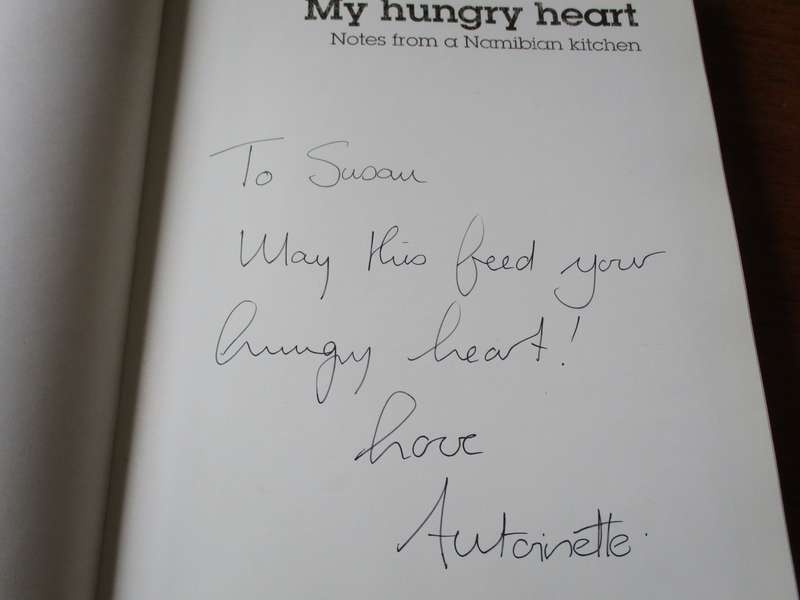 My hungry heart
Notes from a Namibian kitchen
To Susan
May this feed your
hungry heart!
Love
Antoinette.